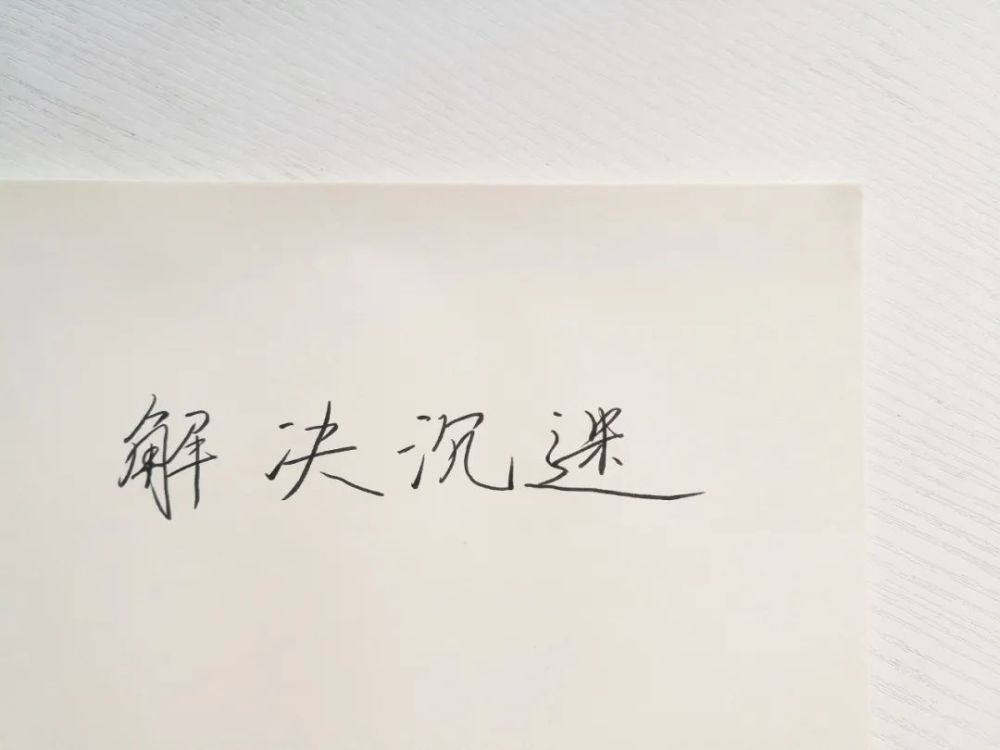 解决沉迷